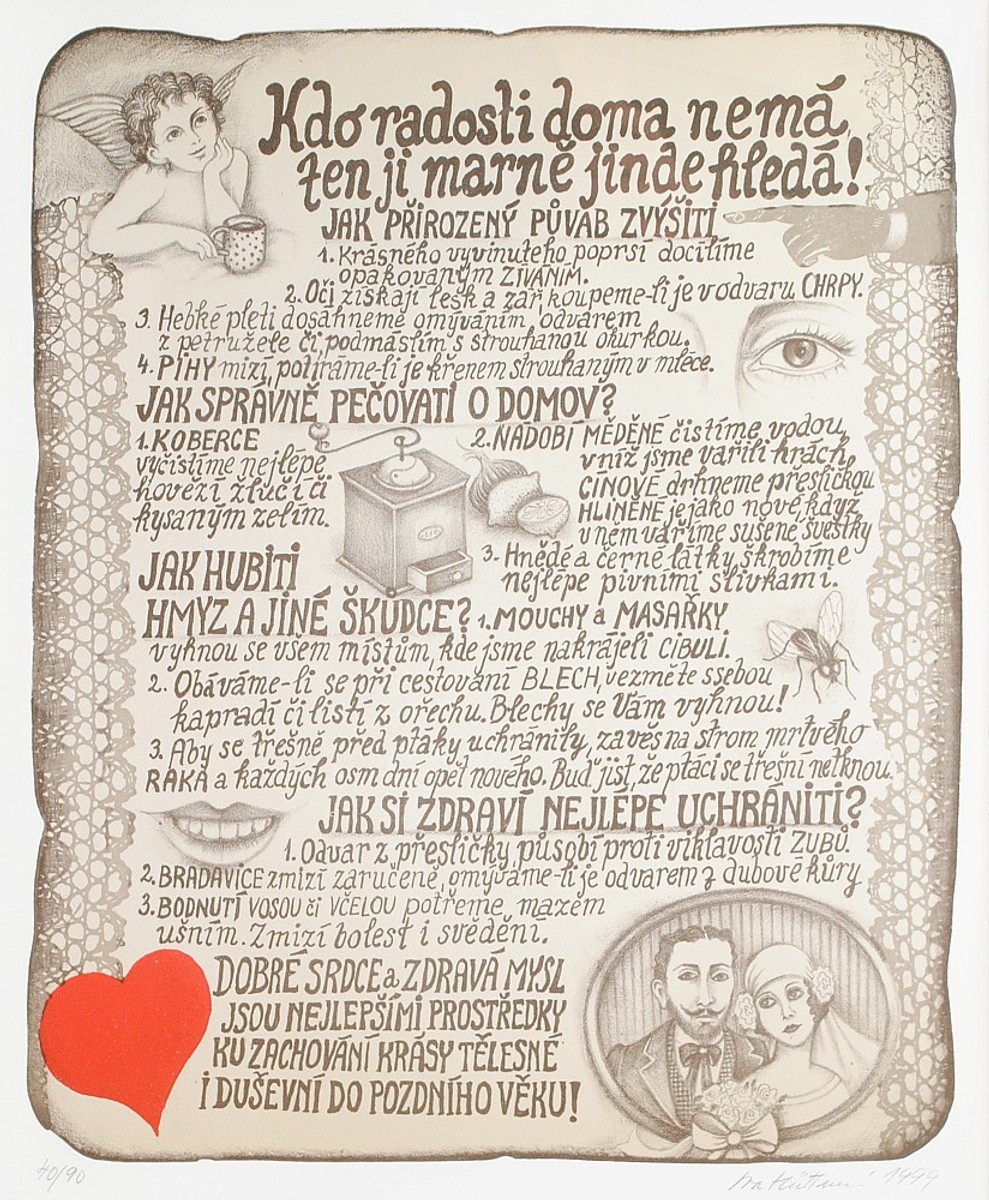 Kdo radosti doma nemá,
ten ji marně jinde hledá!
JAK PŘIROZENÝ PŮVAB ZVÝŠITI
1. Krásného vyvinutého poprsí docílíme
opakovaným ZÍVÁNÍM.
2. Oči získají lesk a zář, koupeme-li je v odvaru CHRPY.
3. Hebké pleti dosáhneme omýváním odvarem
z petružele či podmáslím s strouhanou okurkou.
4. PIHY mizí, potíráme-li je křenem strouhaným v mléce.
JAK SPRÁVNĚ PEČOVATI O DOMOV?
1. KOBERCE
vyčistíme nejlépe
hovězí žlučí či
kysaným zelím.
2. NÁDOBÍ MĚDĚNÉ čistíme vodou,
v níž jsme vařili hrách,
CÍNOVÉ drhneme přesličkou
HLINĚNÉ je jako nové, když
v něm vaříme sušené švestky
3. Hnědé a černé látky škrobíme
nejlépe pivními slivkami.
JAK HUBITI
HMYZ A JINÉ ŠKŮDCE?
1. MOUCHY a MASAŘKY
vyhnou se všem místům, kde jsme nakrájeli CIBULI.
2. Obáváme-li se při cestování BLECH, vezměte ssebou
kapradí či listí z ořechu. Blechy se Vám vyhnou!
3. Aby se třešně před ptáky uchránily, zavěs na strom mrtvého
RAKA a každých osm dní opět nového. Buď jist, že ptáci se třešní netknou.
JAK SI ZDRAVÍ NEJLÉPE UCHRÁNITI?
1. Odvar z přesličky působí proti viklavosti ZUBŮ.
2. BRADAVICE zmizí zaručeně, omýváme-li je odvarem z dubové kůry
3. BODNUTÍ VOSOU či VČELOU potřeme mazem
ušním. Zmizí bolest i svědění.
DOBRÉ SRDCE a ZDRAVÁ MYSL
JSOU NEJLEPŠÍMI PROSTŘEDKY
KU ZACHOVÁNÍ KRÁSY TĚLESNÉ
I DUŠEVNÍ DO POZDNÍHO VĚKU!
40/90
Iva Hüttnerová 1999